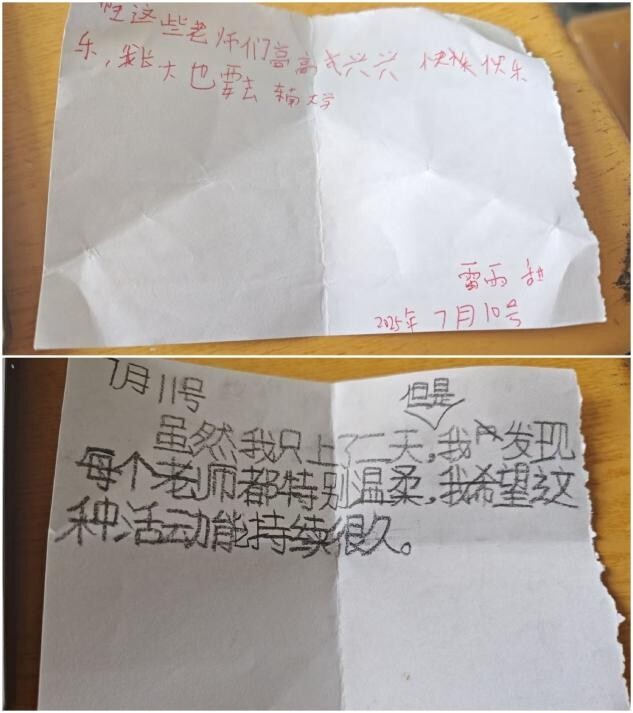 这些老师们高高兴兴 快快乐
乐,我长大也要去 大学
雷雨甜
2025年 7月10号
7月11号
但是
虽然我只上了二天,我发现
每个老师都特别温柔,我希望这
种活动能持续很久。